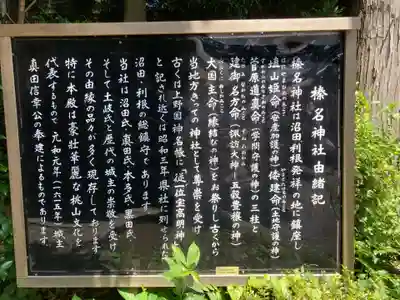 榛名神社由緒記
榛名神社は沼田利根発祥の地に鎮座し
埴山姫命(安産加護の神)倭建命(土地守護の神)
菅原道真命(学問守護の神)の三柱と
建御名方命(諏訪大神-五穀豊穣の神)
大国主命(縁結びの神)をお祭りし古くから
当地方きっての神社として尊崇を受け
古くは上野国神名帳に「従一位宝高明神」
と記され近くは昭和三年県社に列せられた
沼田・利根の総鎮守であります。
当社は沼田氏・真田氏・本多氏・黒田氏
そして土岐氏と歴代の城主の崇敬を受け
その由縁の品々が多く現存しております
特に本殿は豪壮華麗な桃山文化を
代表するもので、元和元年(一六一五年)城主
真田信幸公の奉建によるものであります。